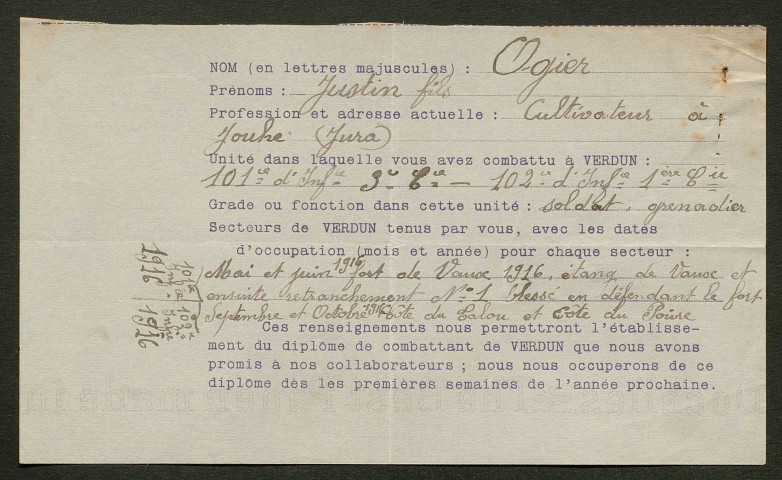 NOM (en lettres majuscules) : Ogier
Prénoms : Justin fils
Profession et adresse actuelle : Cultivateur à
Jouhe (Jura)
Unité dans laquelle vous avez combattu à VERDUN :
101e d'Infie 3e Cie — 102e d'Infie 1ère Cie
Grade ou fonction dans cette unité : soldat, grenadier
Secteurs de VERDUN tenus par vous, avec les dates
d'occupation (mois et année) pour chaque secteur :
Mai et juin 1916 fort de Vaux 1916, étang de Vaux et
ensuite retranchement No 1 blessé en défendant le fort
Septembre et Octobre 1916 Côte du Talou et Côte du Poivre
101e Infie 1916
102e Infie 1916
Ces renseignements nous permettront l'établisse-
ment du diplôme de combattant de VERDUN que nous avons
promis à nos collaborateurs ; nous nous occuperons de ce
diplôme dès les premières semaines de l'année prochaine.